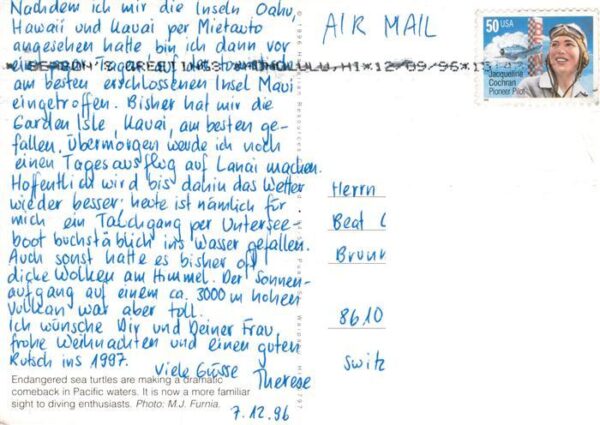 Nachdem ich mir die Inseln Oahu,
Hawaii und Kauai per Mietauto
angesehen hatte bin ich dann vor
Tagen auf der
am besten erschlossenen Insel Maui
eingetroffen. Bisher hat mir die
Garden Isle, Kauai, am besten ge-
fallen. Übermorgen werde ich noch
einen Tagesausflug auf Lanai machen.
Hoffentlich wird bis dahin das Wetter
wieder besser; heute ist nämlich für
mich ein Tauchgang per Untersee-
boot buchstäblich ins Wasser gefallen.
Auch sonst hatte es bisher oft
dicke Wolken am Himmel. Der Sonnen-
aufgang auf einem ca. 3000 m hohen
Vulkan war aber toll.
Ich wünsche Dir und Deiner Frau,
frohe Weihnachten und einen guten
Rutsch ins 1997.
Viele Grüsse
Therese
7.12.96
Endangered sea turtles are making a dramatic
comeback in Pacific waters. It is now a more familiar
sight to diving enthusiasts. Photo: M.J. Furnia.
© 1996
AIR MAIL
50 USA
Jacqueline
Cochran
Pioneer Pilot
SEASON'S GREETINGS HONOLULU, HI 12/09/96
Herrn
Beat
8610
Switz